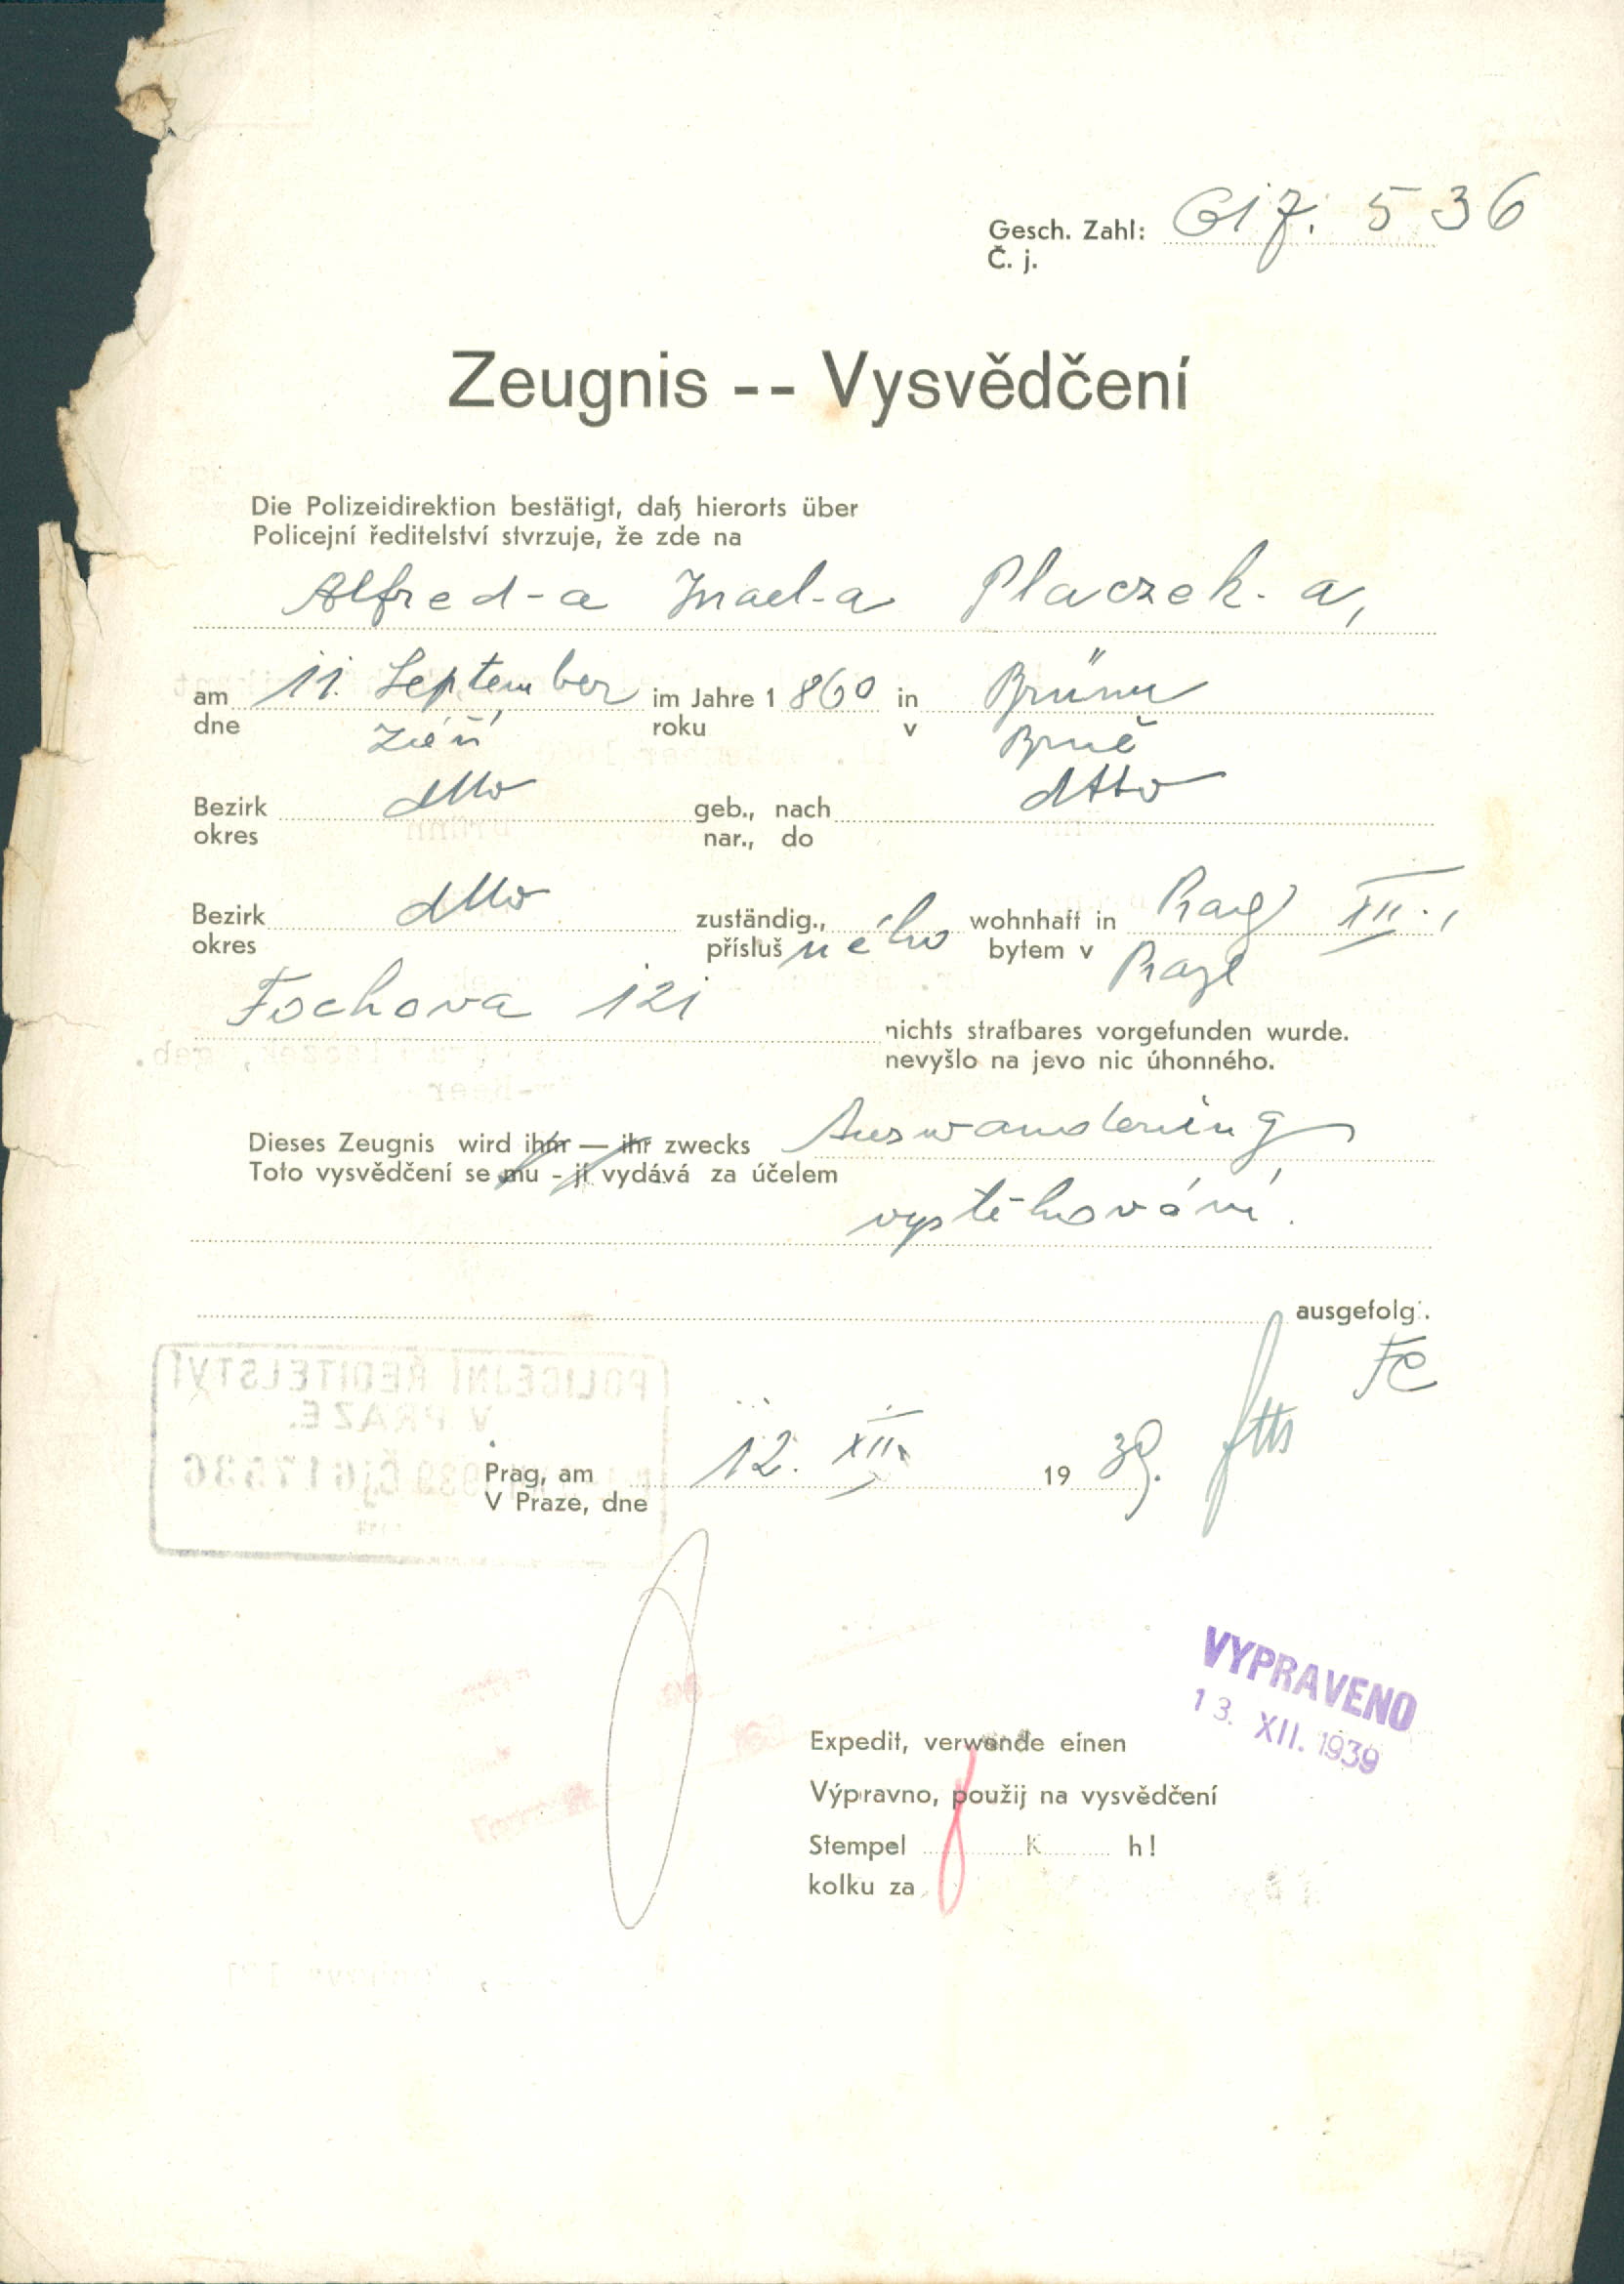 Gesch. Zahl: 617.536
Č. j.
Zeugnis -- Vysvědčení
Die Polizeidirektion bestätigt, daß hierorts über
Policejní ředitelství stvrzuje, že zde na
Alfred-a Israel-a Placzek-a,
am 11. September im Jahre 1860 in Brünn
dne září roku v Brně
Bezirk dtto geb., nach dtto
okres nar., do
Bezirk dtto zuständig., wohnhaft in Prag XII.,
okres příslušného bytem v Praze
Fochova 121 nichts strafbares vorgefunden wurde.
nevyšlo na jevo nic úhonného.
Dieses Zeugnis wird ihm — ihr zwecks Auswanderung
Toto vysvědčení se mu - jí vydává za účelem
vystěhování.
ausgefolg.
FC
POLICEJNÍ ŘEDITELSTVÍ
V PRAZE.
1939 Čj 617536
Prag, am 12. XII. 1939.
V Praze, dne
VYPRAVENO
13. XII. 1939
Expedit, verwende einen
Výpravno, použij na vysvědčení
Stempel K h!
kolku za